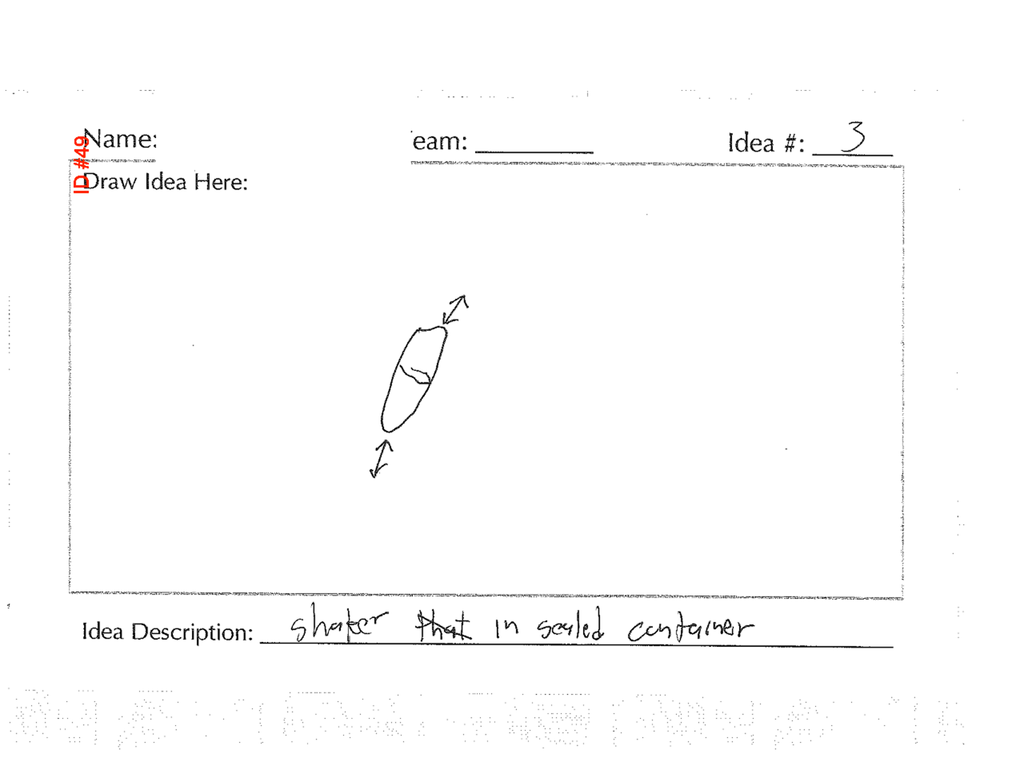 ID #49
Name: eam: Idea #: 3
Draw Idea Here:
Idea Description: shaker that in sealed container